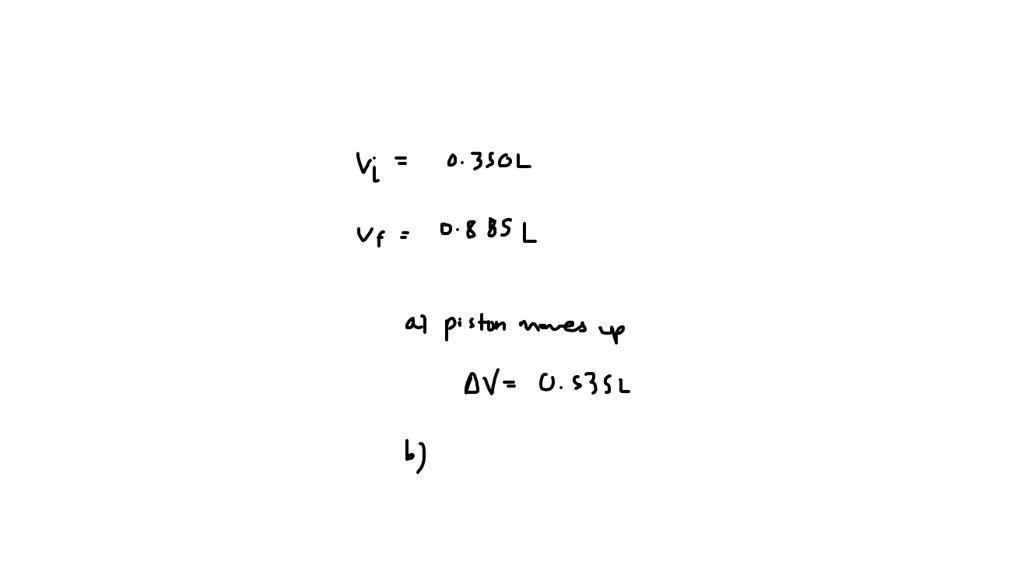 Vi = 0.350L
Vf = 0.885 L
a) piston moves up
ΔV = 0.535L
b)